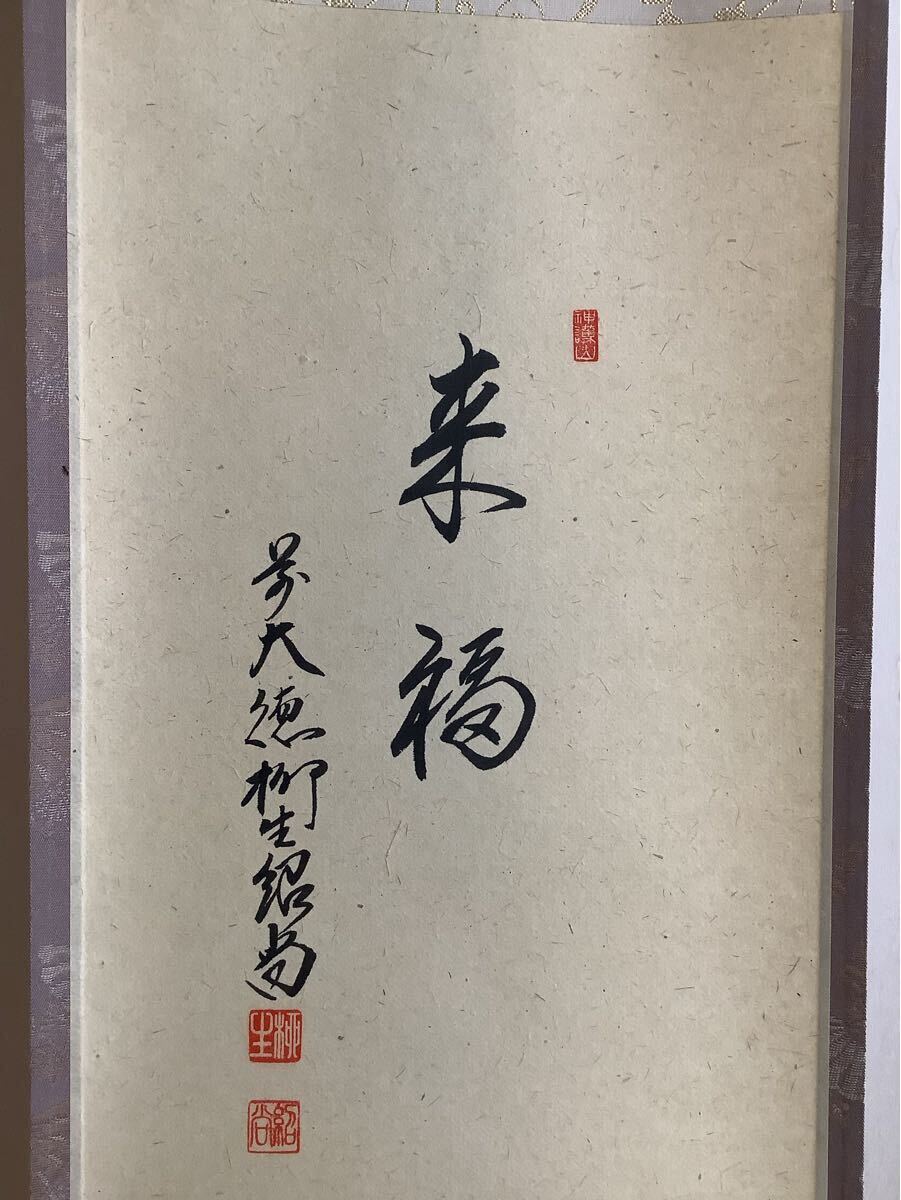 神護山
来福
前大徳柳生紹尚
柳生
紹尚